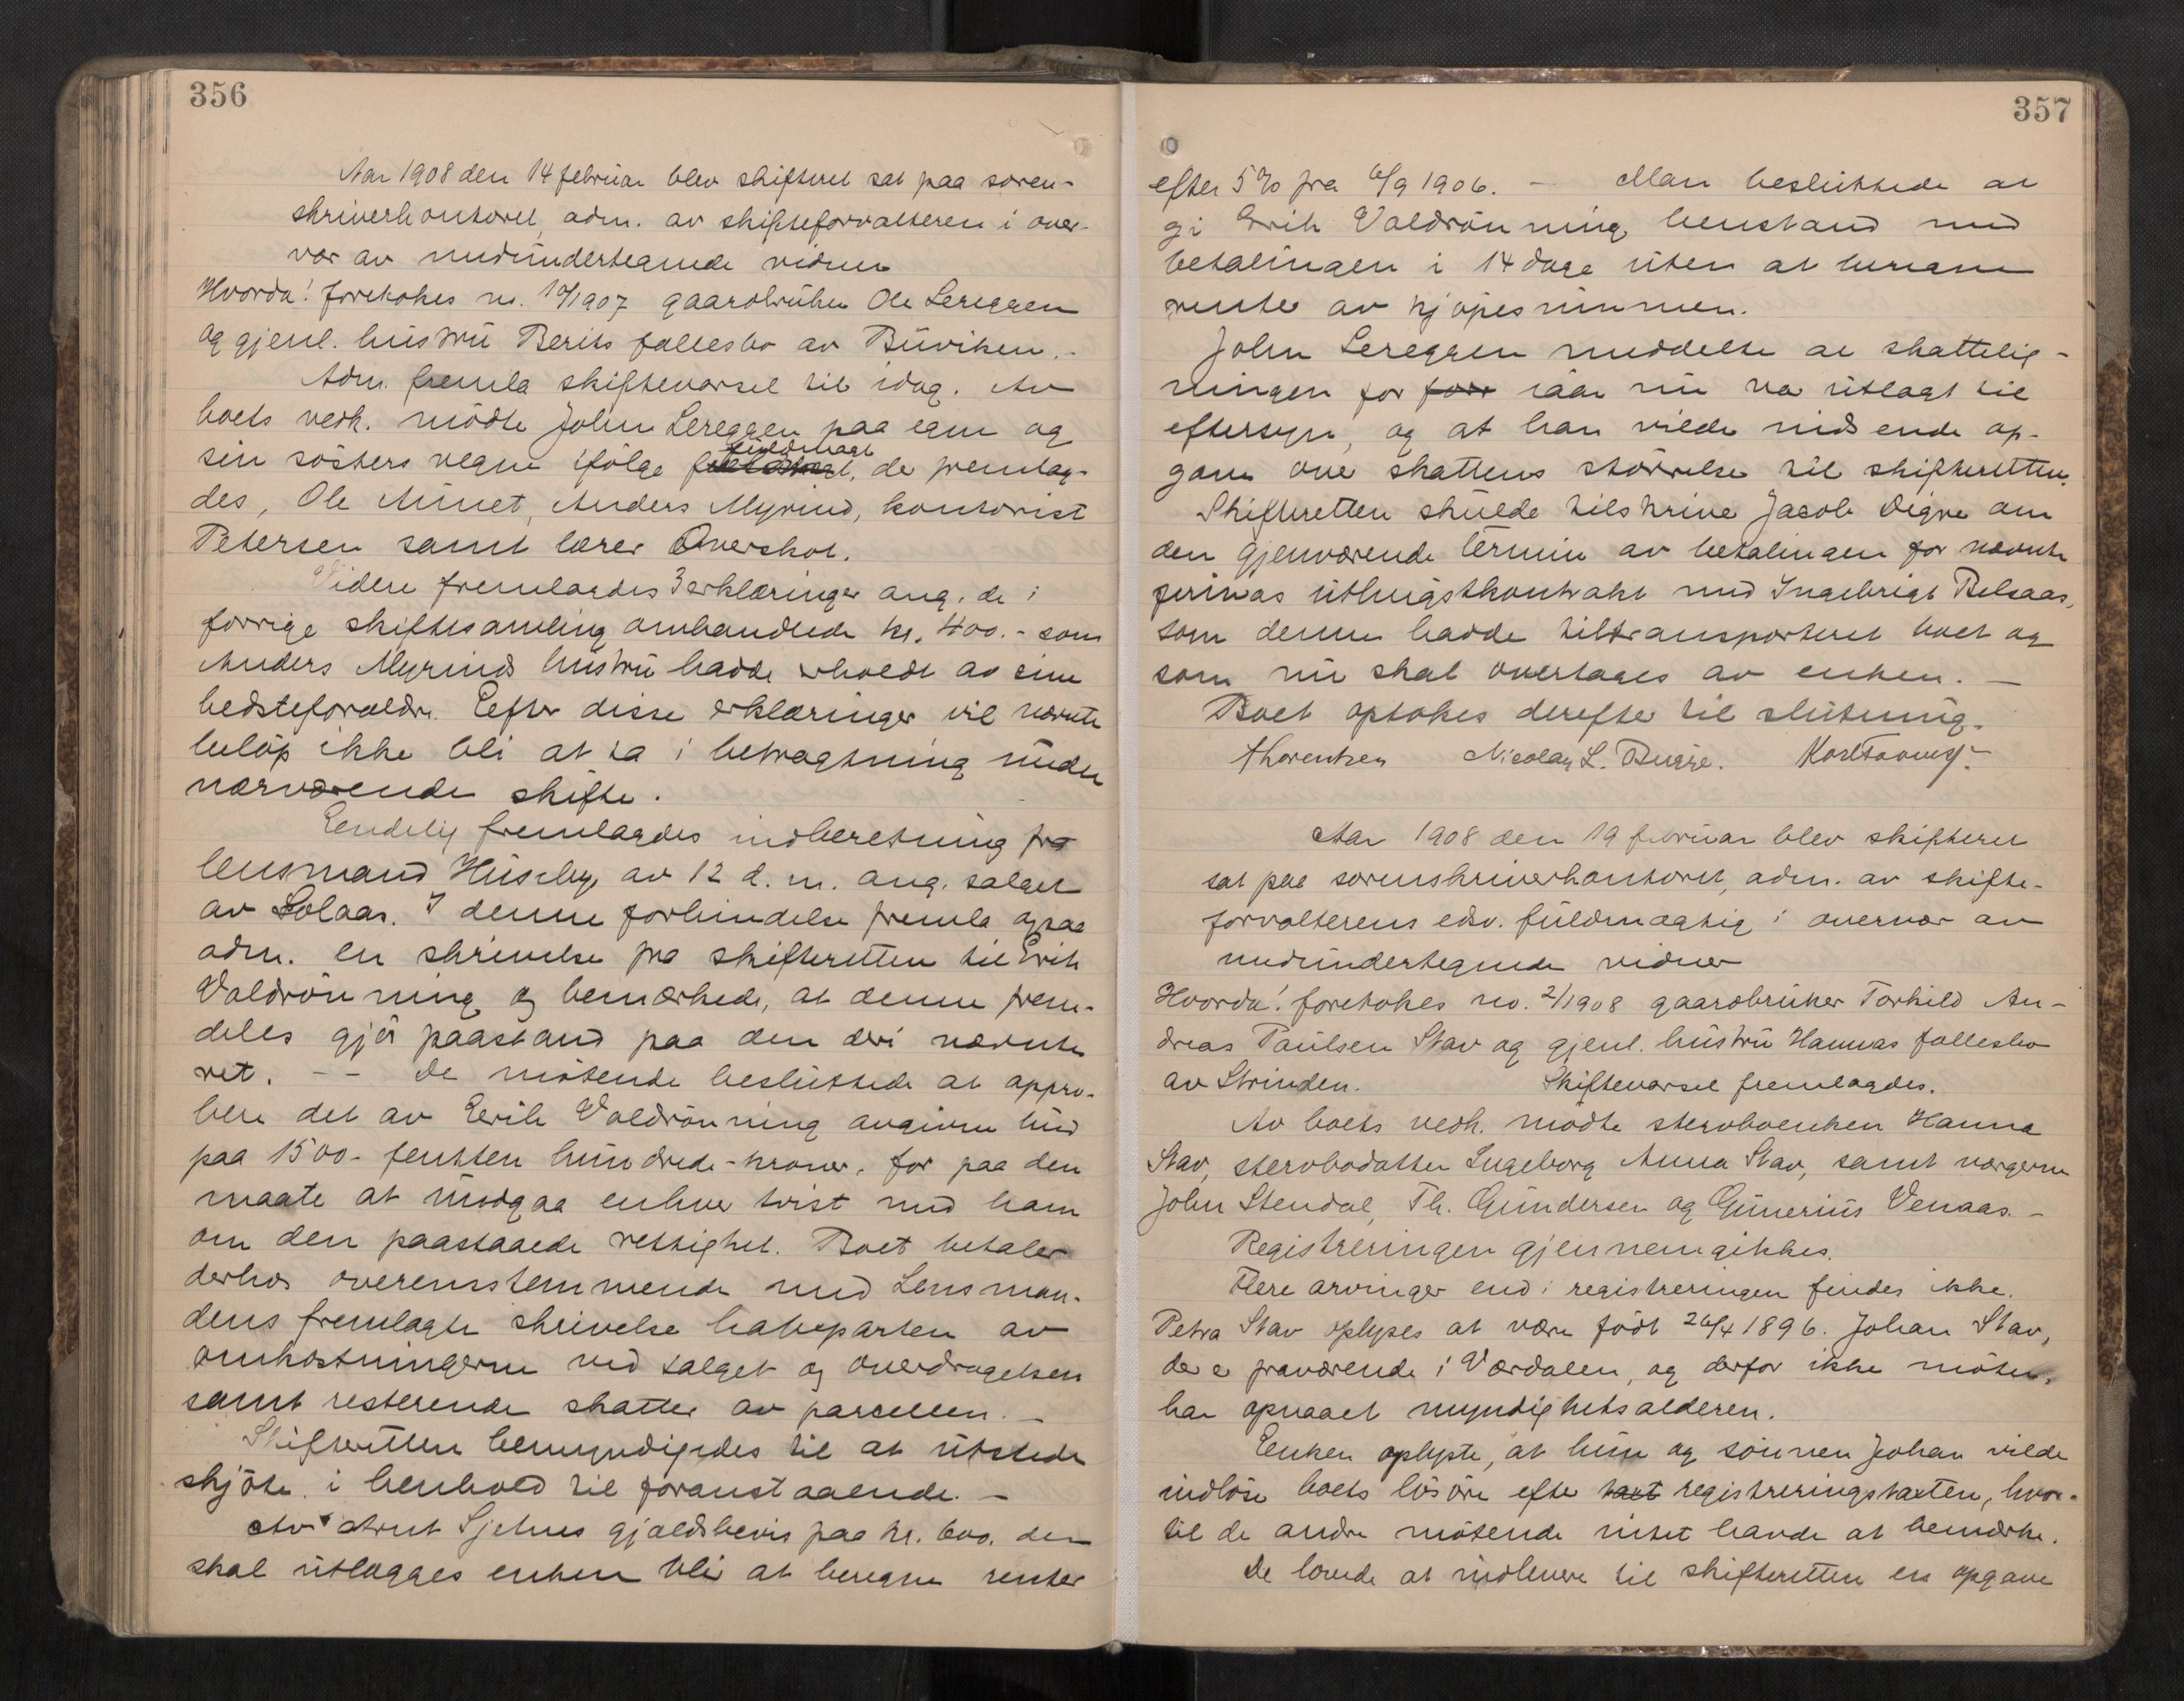 356
Aar 1908 den 14 februar blev skifteret sat paa soren-
skriverkontoret, adm. av skifteforvalteren i over-
vær av medundertegnede vidner
Hvorda! foretokes no. 10/1907 gaardbruker Ole Lereggen
og gjenl. hustru Berits fællesbo av Buviken.-
Adm. fremla skiftevarsel til idag. Av
boets vedk. mødte John Lereggen paa egne og
sin søsters vegne ifølge fuldmagt, der fremlag-
des, Ole Aunet, Anders Myrind, kontorist
Petersen samt lærer Overskot.
Videre fremlagdes 3 erklæringer ang. de i
forrige skiftesamling omhandlede kr. 400.- som
Anders Myrinds hustru hadde erholdt av sine
bedsteforældre. Efter disse erklæringer vil nævnte
beløp ikke bli at ta i betragtning under
nærværende skifte.
Endelig fremlagdes indberetning fra
lensmand Huseby, av 12 d. m. ang. salget
av Solaas. I denne forbindelse fremla ogsaa
adm. en skrivelse fra skifteretten til Erik
Valdrønning og bemærkede, at denne frem-
deles gjør paastand paa den deri nævnte
ret. -- De møtende besluttede at appro-
bere det av Erik Valdrønning avgivne bud
paa 1500- femten hundrede-kroner, for paa den
maate at undgaa enhver tvist med ham
om den paastaaede rettighet. Boet betaler
derhos overensstemmende med Lensman-
dens fremlagte skrivelse halvparten av
omkostningerne ved salget og overdragelsen
samt resterende skatter av parcellen. -
Skifteretten bemyndigedes til at utstede
skjøte i henhold til foranstaaende. -
Av Arnt Sjetnes gjældsbevis paa kr. 600. der
skal utlægges enken blir at beregne renter
357
efter 5% fra 6/9 1906. - Man besluttede at
gi Erik Valdrønning henstand med
betalingen i 14 dage uten at beregne
renter av kjøpesummen.
John Lereggen meddelte at skattelig-
ningen for for iaar nu var utlagt til
eftersyn, og at han vilde indsende op-
gave over skattens størrelse til skifteretten.
Skifteretten skulde tilskrive Jacob Digre om
den gjenværende termin av betalingen for nævnte
utbygstkontrakt med Ingebrigt Belsaas,
som denne hadde tiltransporteret boet og
som nu skal overtages av enken. -
Boet optokes derefter til slutning.
Thorentzen Nicolay L. Bugge.
Aar 1908 den 19 februar blev skifteret
sat paa sorenskriverkontoret, adm. av skifte-
forvalterens edsv. fuldmægtig i overvær av
medundertegnede vidner
Hvorda! foretokes no. 2/1908 gaardbruker Torkild An-
dreas Paulsen Stav og gjenl. hustru Hannas fællesbo
av Strinden. Skiftevarsel fremlagdes.
Av boets vedk. mødte stervboenken Hanna
Stav, stervbodatter Ingeborg Anna Stav, samt værgerne
John Stendal, Th. Gundersen og Gunerius Venaas.-
Registreringen gjennemgikkes.
Flere arvinger end i registreringen findes ikke.
Petra Stav oplyses at være født 26/4 1896. Johan Stav,
der er fraværende i Værdalen, og derfor ikke møter,
har opnaaet myndighetsalderen.
Enken oplyste, at hun og sønnen Johan vilde
indløse boets løsøre efter taxt registreringstaxten, hvor-
til de andre møtende intet havde at bemærke.
De lovede at indlevere til skifteretten en opgave